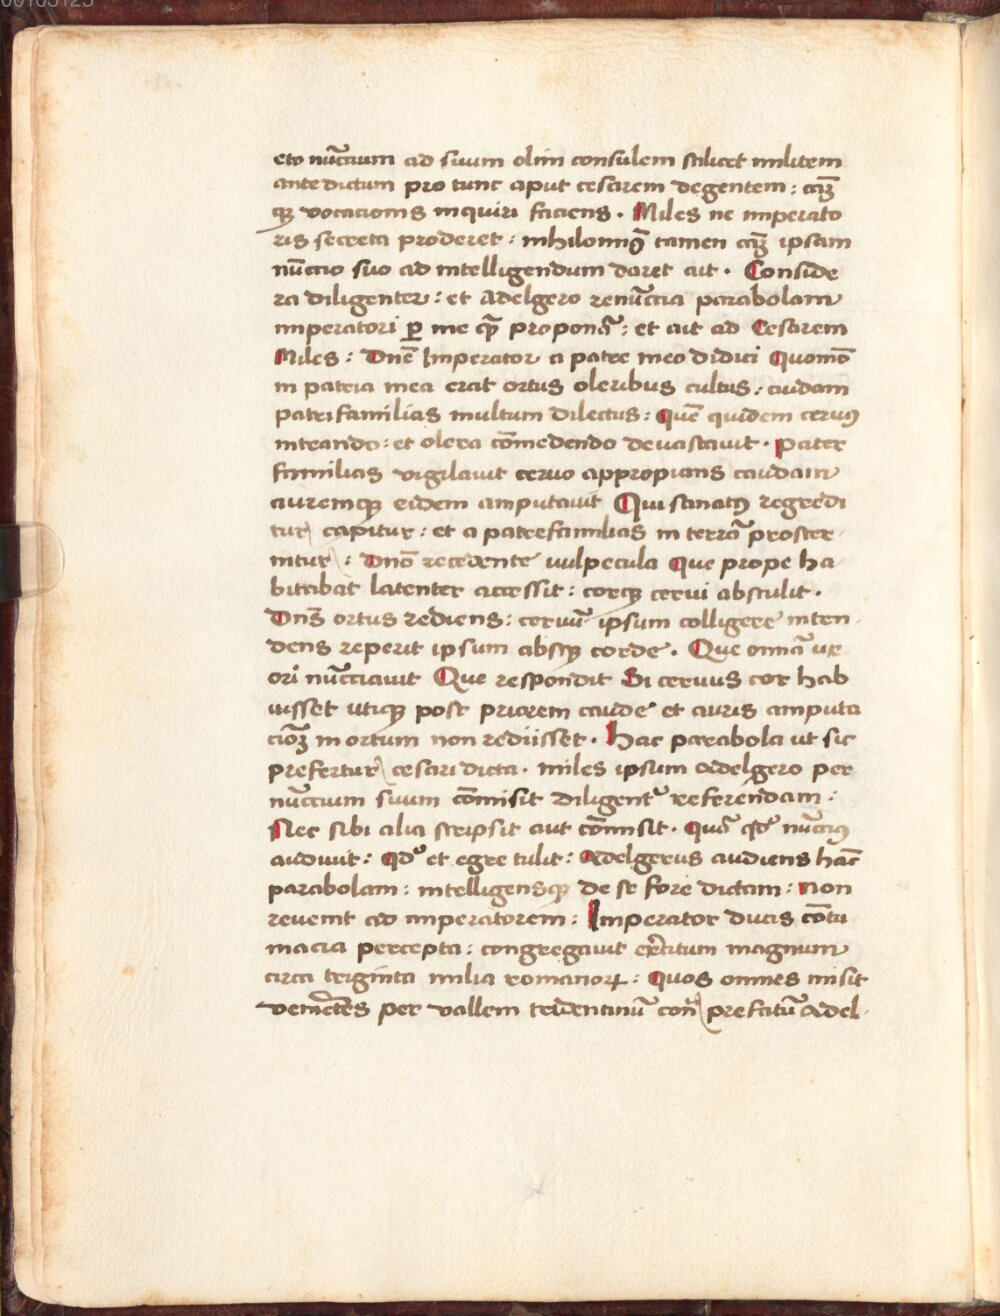 00103125
eto nūctium ad suum olim consulem scilicet militem
ante dictum pro tunc aput cesarem degentem : cāʒ
qʒ vocacionis inquiri faciens . Miles ne imperato
ris secreta proderet : nihilomīꝰ tamen cāʒ ipsam
nūctio suo ad intelligendum daret ait . Conside
ra diligenter : et Adelgero renūctia parabolam
imperatori ꝑ me quā proponā : et ait ad Cesarem
Miles : Dn̄e Imperator a patre meo didici Quomō
in patria mea erat ortus oleribus cultus : cuidam
patrifamilias multum dilectus : Quē quidem cervꝰ
intrando : et olera cōmedendo devastavit . Pater
familias vigilavit cervo appropians caudam
auremqʒ eidem amputavit Qui sanatꝰ regredi
tur capitur : et a patrefamilias in terrā proster
nitur : Dn̄o recedente vulpecula Que prope ha
bitabat latenter accessit : corqʒ cervi abstulit .
Dn̄s ortus rediens : cervū ipsum colligere inten
dens reperit ipsum absqʒ corde . Que omnia ux
ori nūcciavit Que respondit Si cervus cor hab
uisset utiqʒ post priorem caude et auris amputa
cioēʒ in ortum non rediisset . Hac parabola ut sic
prefertur cesari dicta . miles ipsum Adelgero per
nūctium suum cōmisit diligentʳ referendam :
Nec sibi alia scripsit aut cōmisit . Quā qdē nūctiꝰ
audivit : Qdō et egre tulit : Adelgerus audiens hāc
parabolam : intelligensqʒ de se fore dictam : non
revenit ad imperatorem : Imperator ducis cōtu
macia percepta : congregavit exʳcitum magnum
circa triginta milia romanoꝝ : Quos omnes misit
veniētes per vallem tridentinū con̄ prefatū Adel-